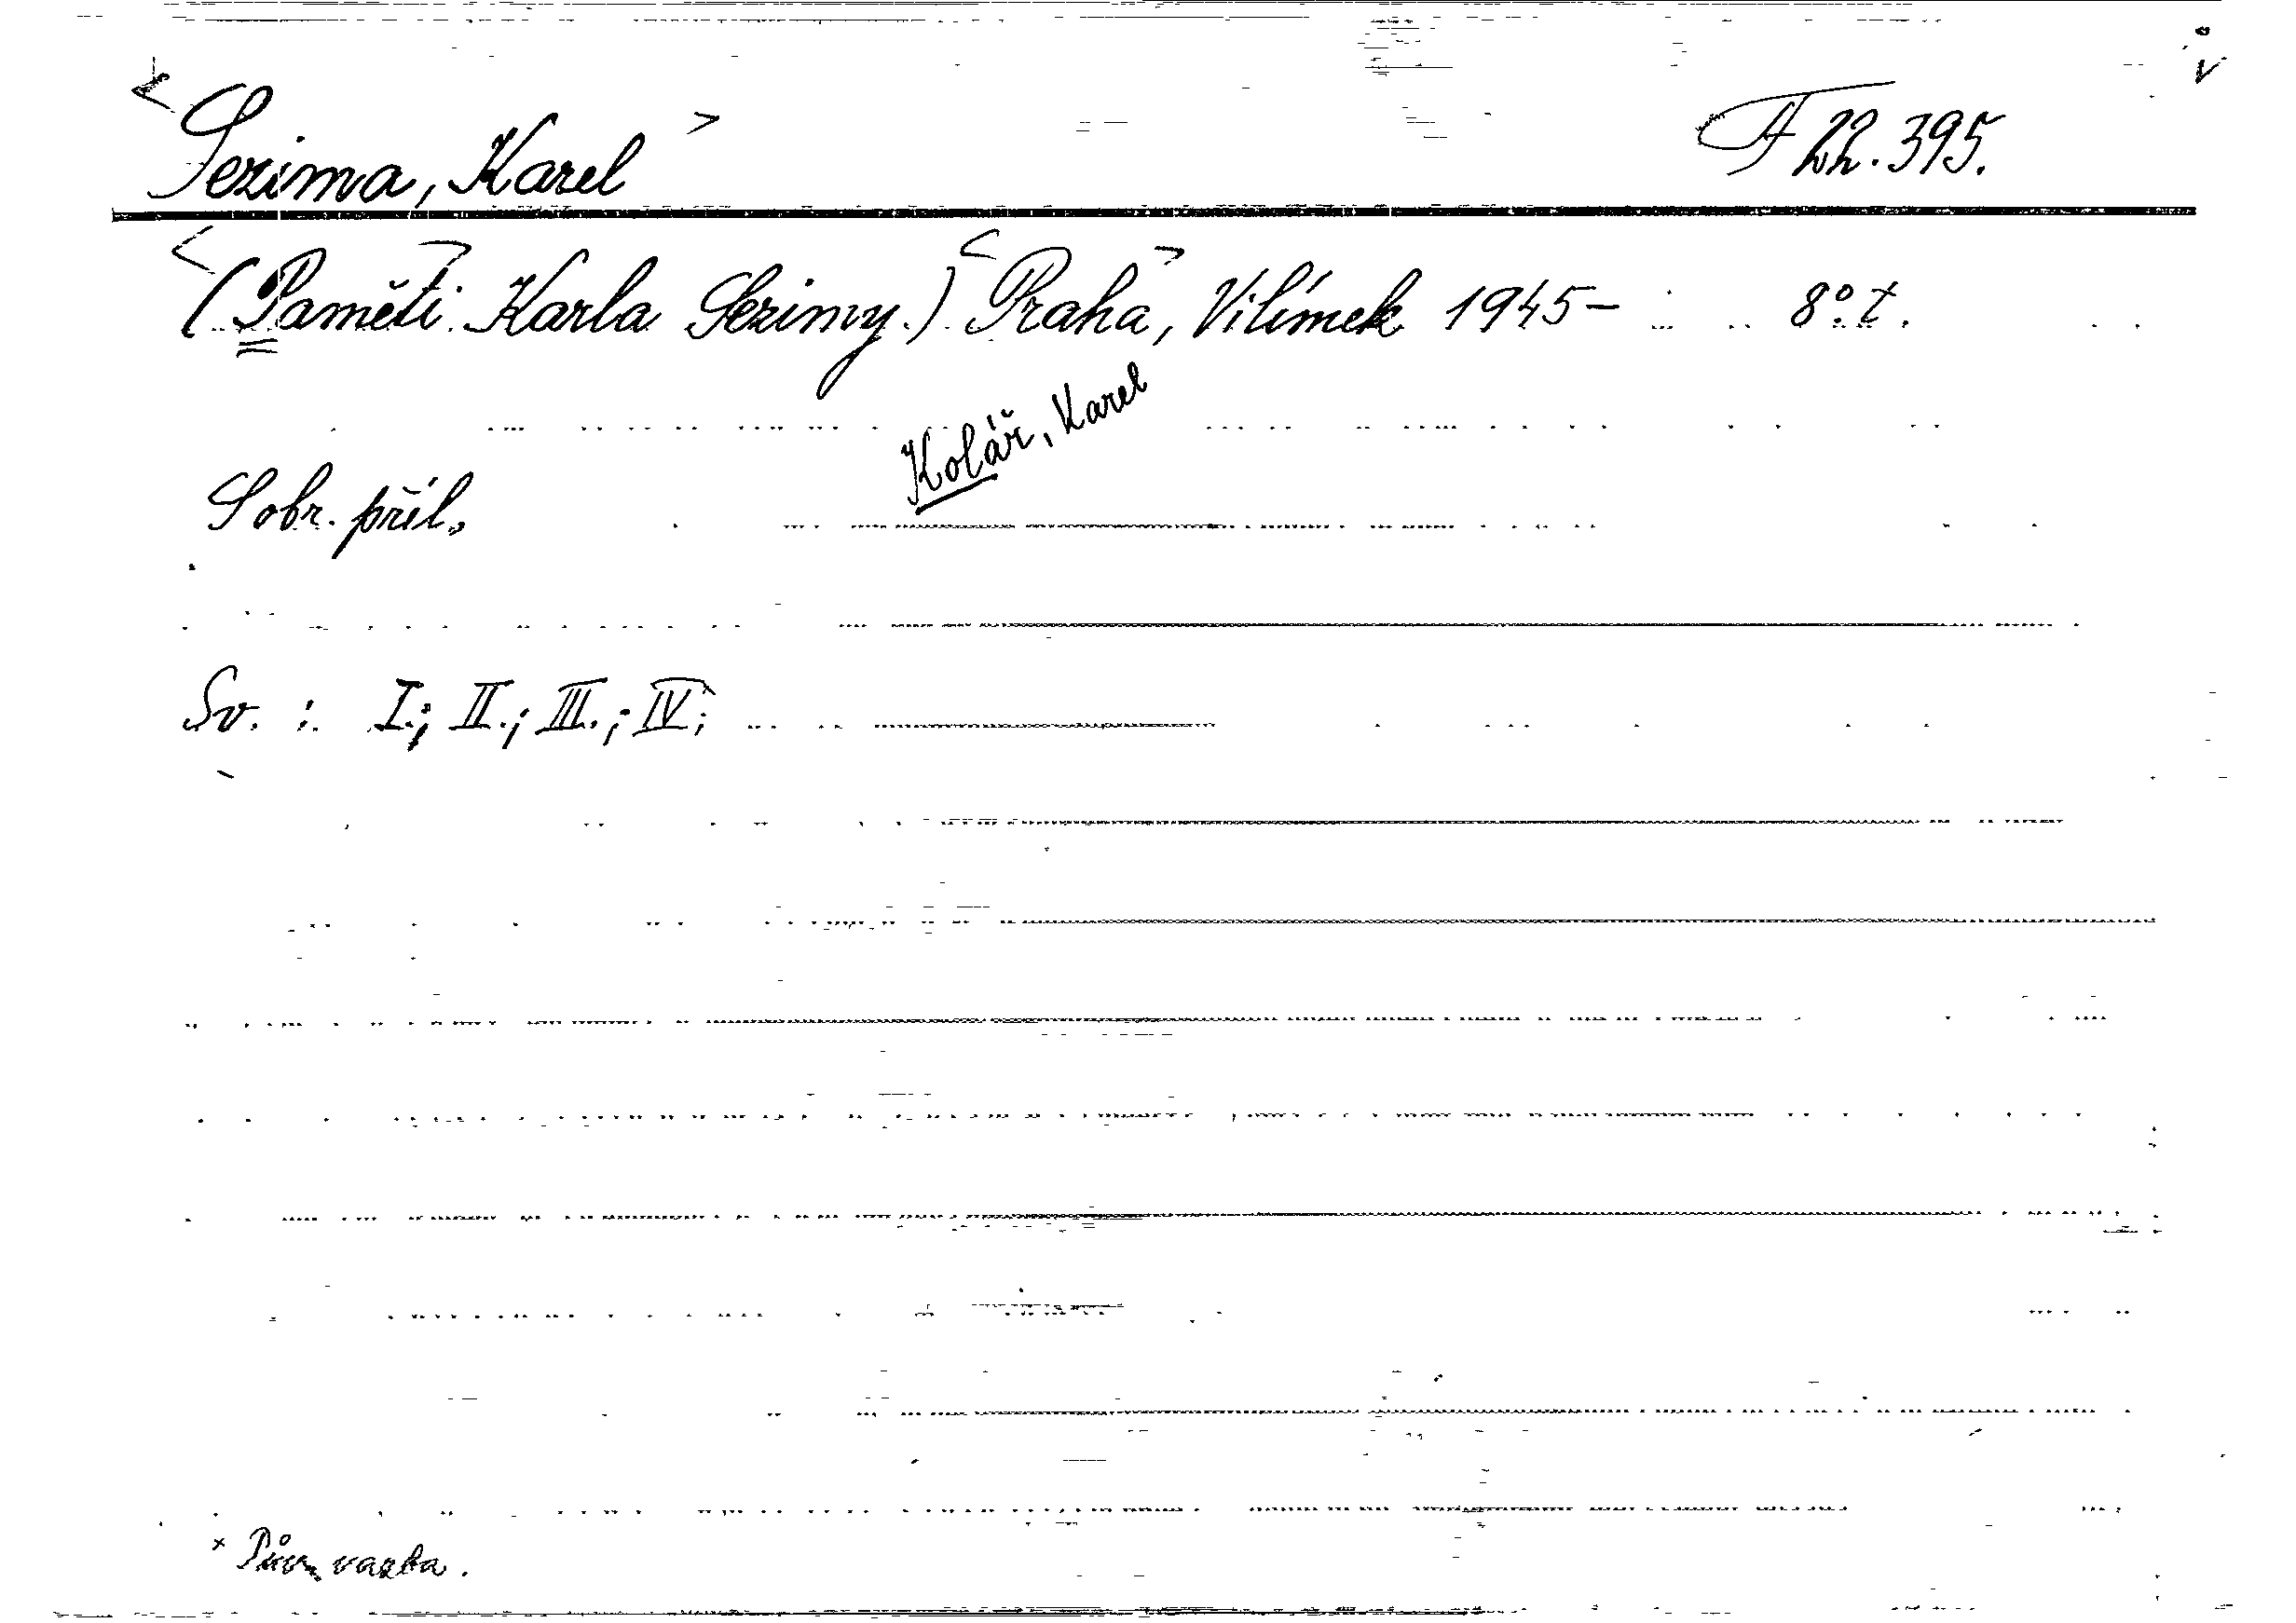 <Sezima, Karel> F 22.395.
<(Paměti> Karla Sezimy.) <Praha>, Vilímek 1945- 8°. t.
Kolář, Karel
S obr. příl.
Sv. : I.; II.; III.; IV;
* Pův. vazba.